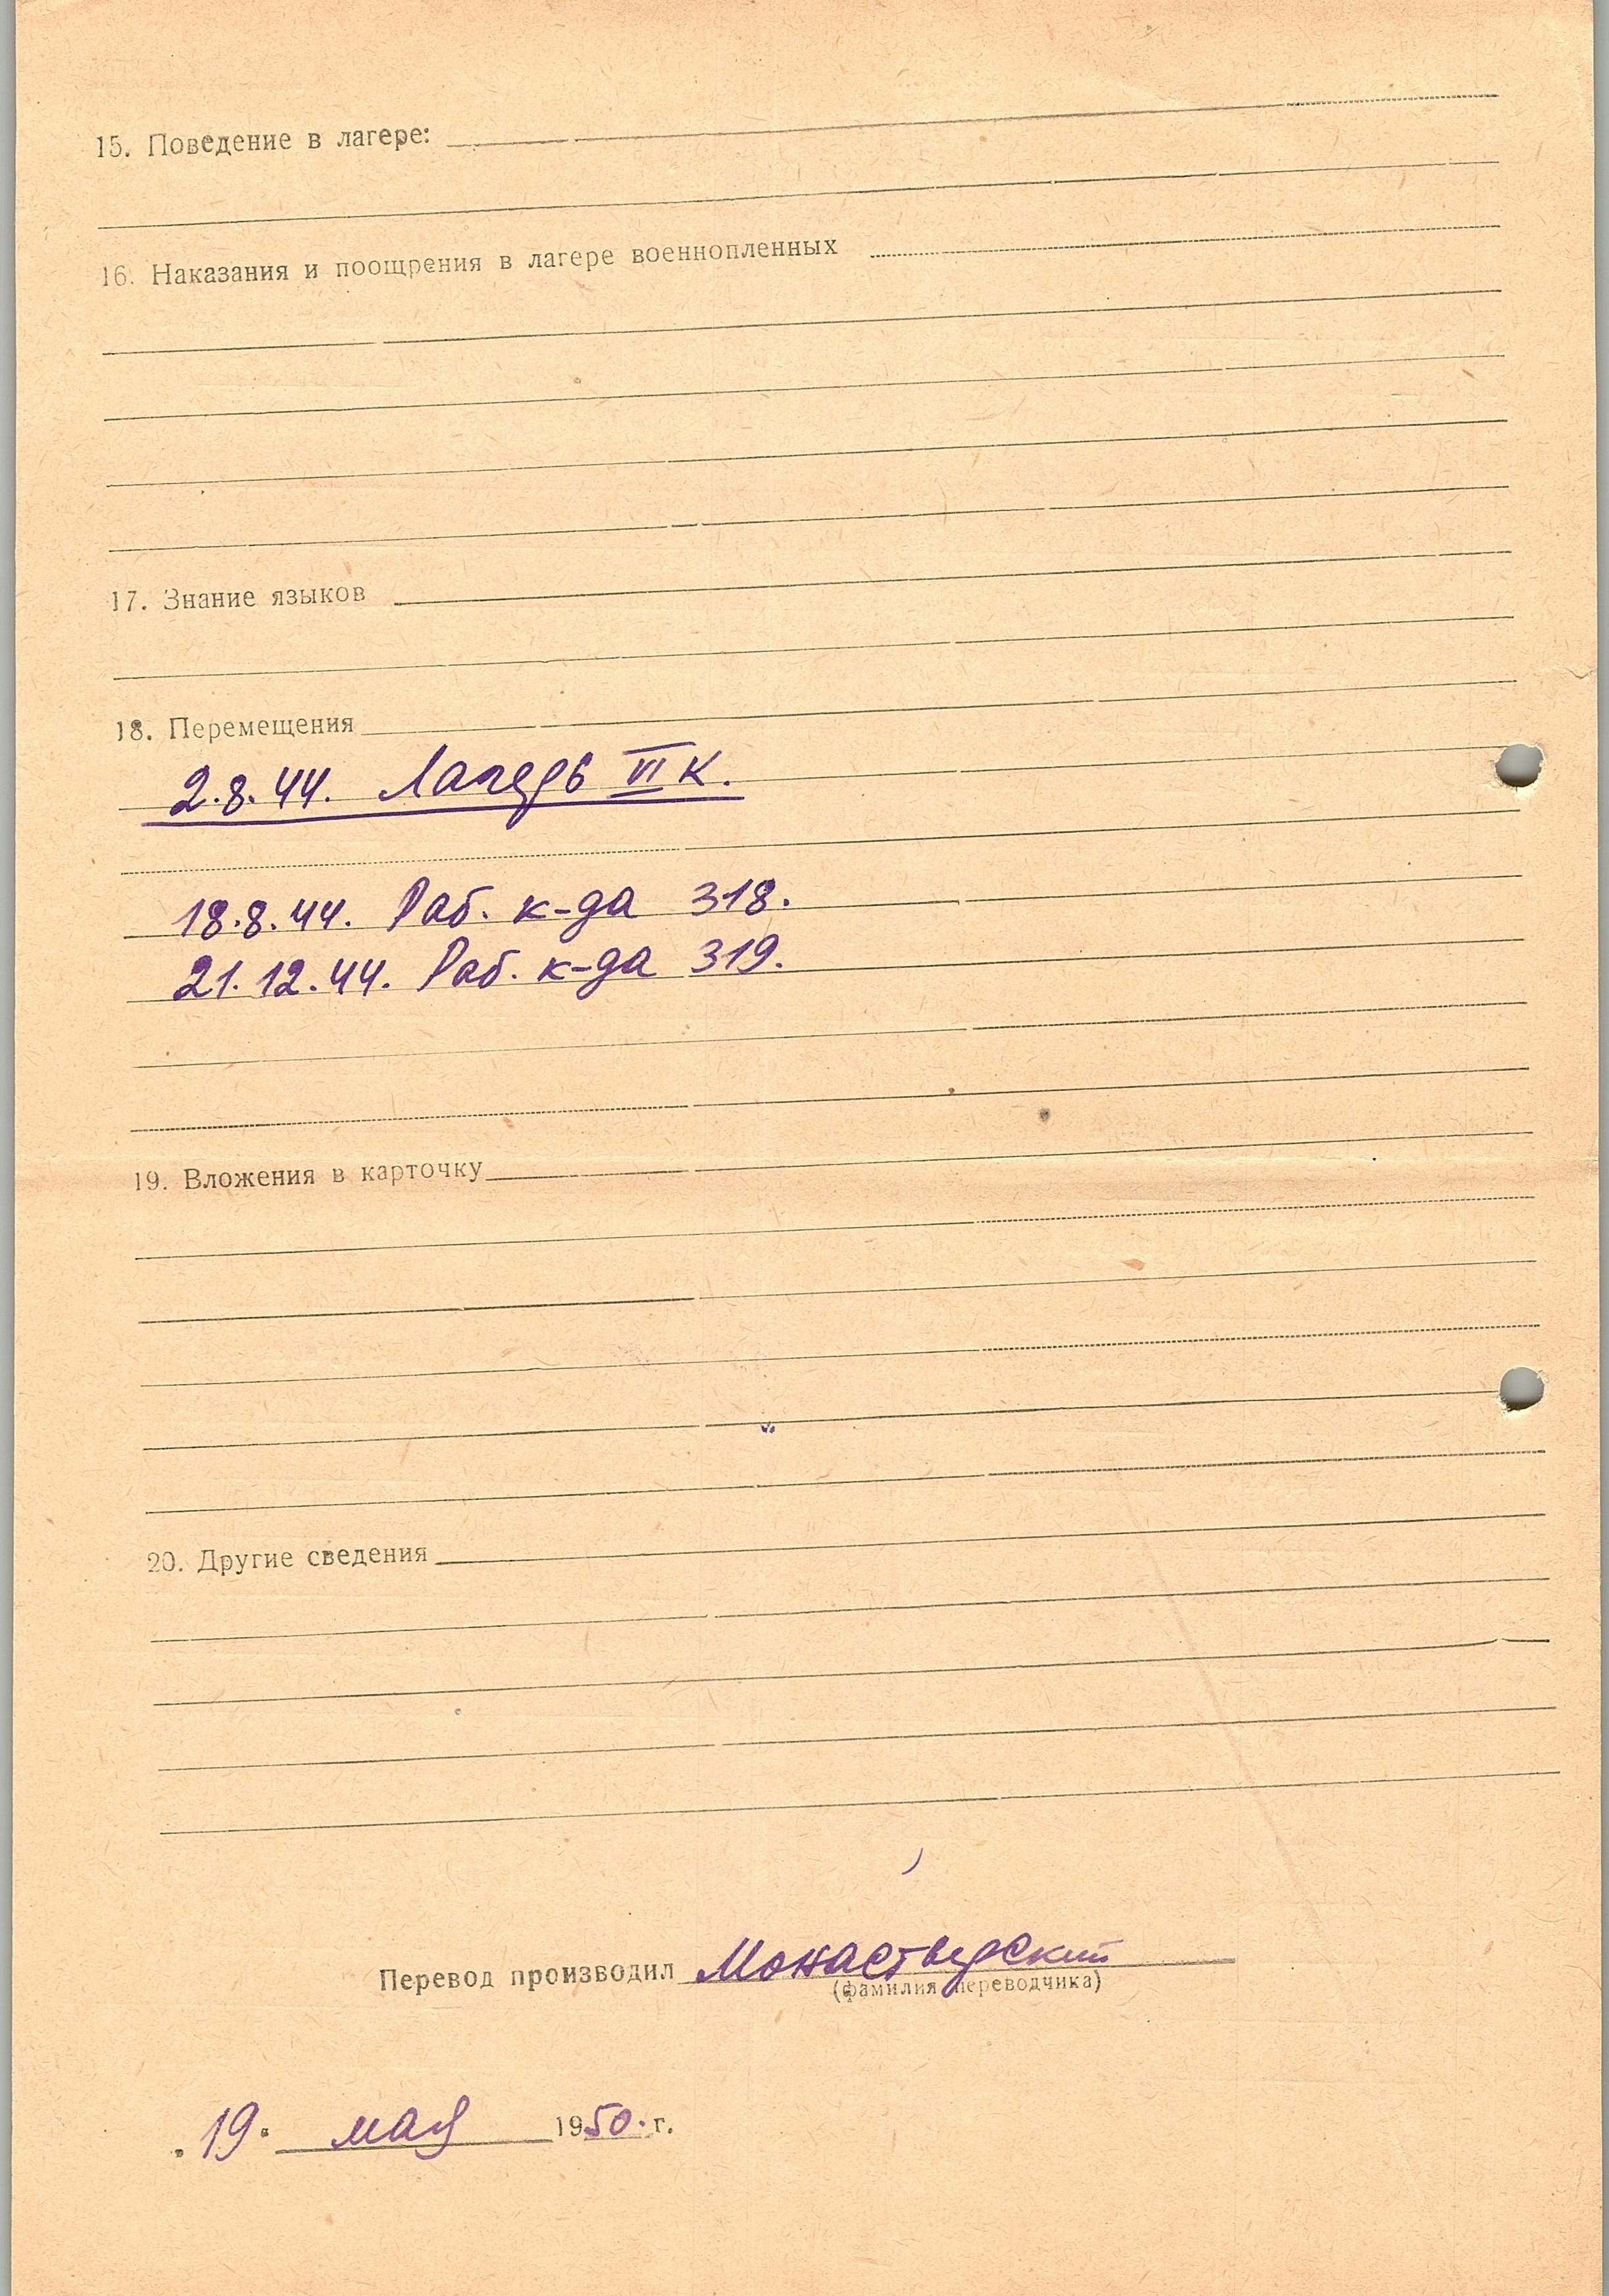 15. Поведение в лагере:
16. Наказания и поощрения в лагере военнопленных
17. Знание языков
18. Перемещения
2.8.44. Лагерь VI К.
18.8.44. Раб. к-да 318.
21.12.44. Раб. к-да 319.
19. Вложения в карточку
20. Другие сведения
Перевод производил Монастырский
(фамилия переводчика)
"19" мая 1950 г.